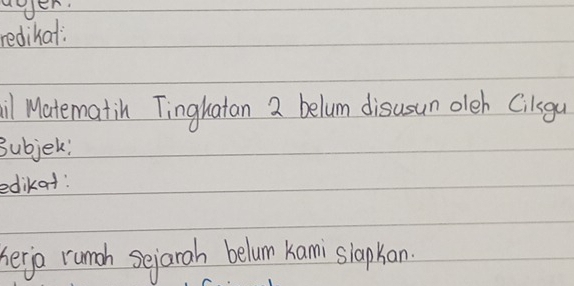 ubjek:
redikat:
il Matematik Tingkatan 2 belum disusun oleh Cikgu
Subjek:
edikat:
kerja rumah Sejarah belum kami siapkan.